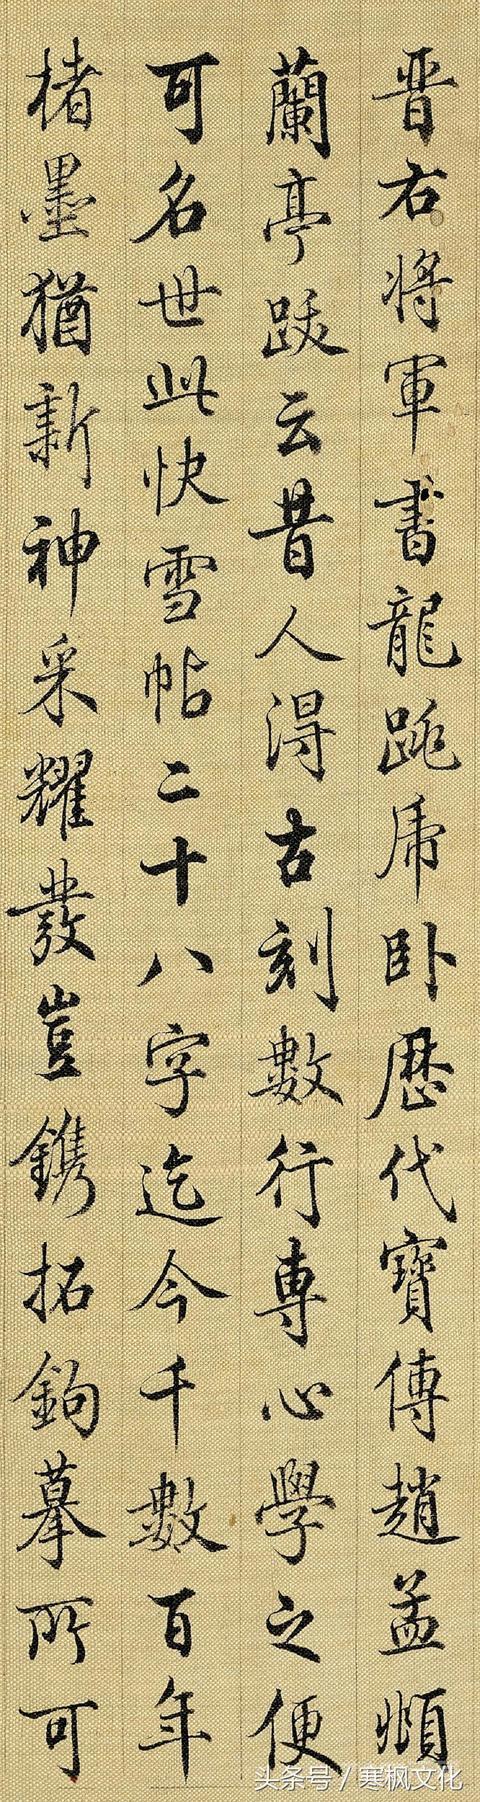 晋右將軍書龍跳虎卧歷代寶傳趙孟頫
蘭亭跋云昔人得古刻數行專心學之便
可名世此快雪帖二十八字迄今千數百年
楮墨猶新神采耀發豈鐫拓鉤摹所可
头条号/寒枫文化